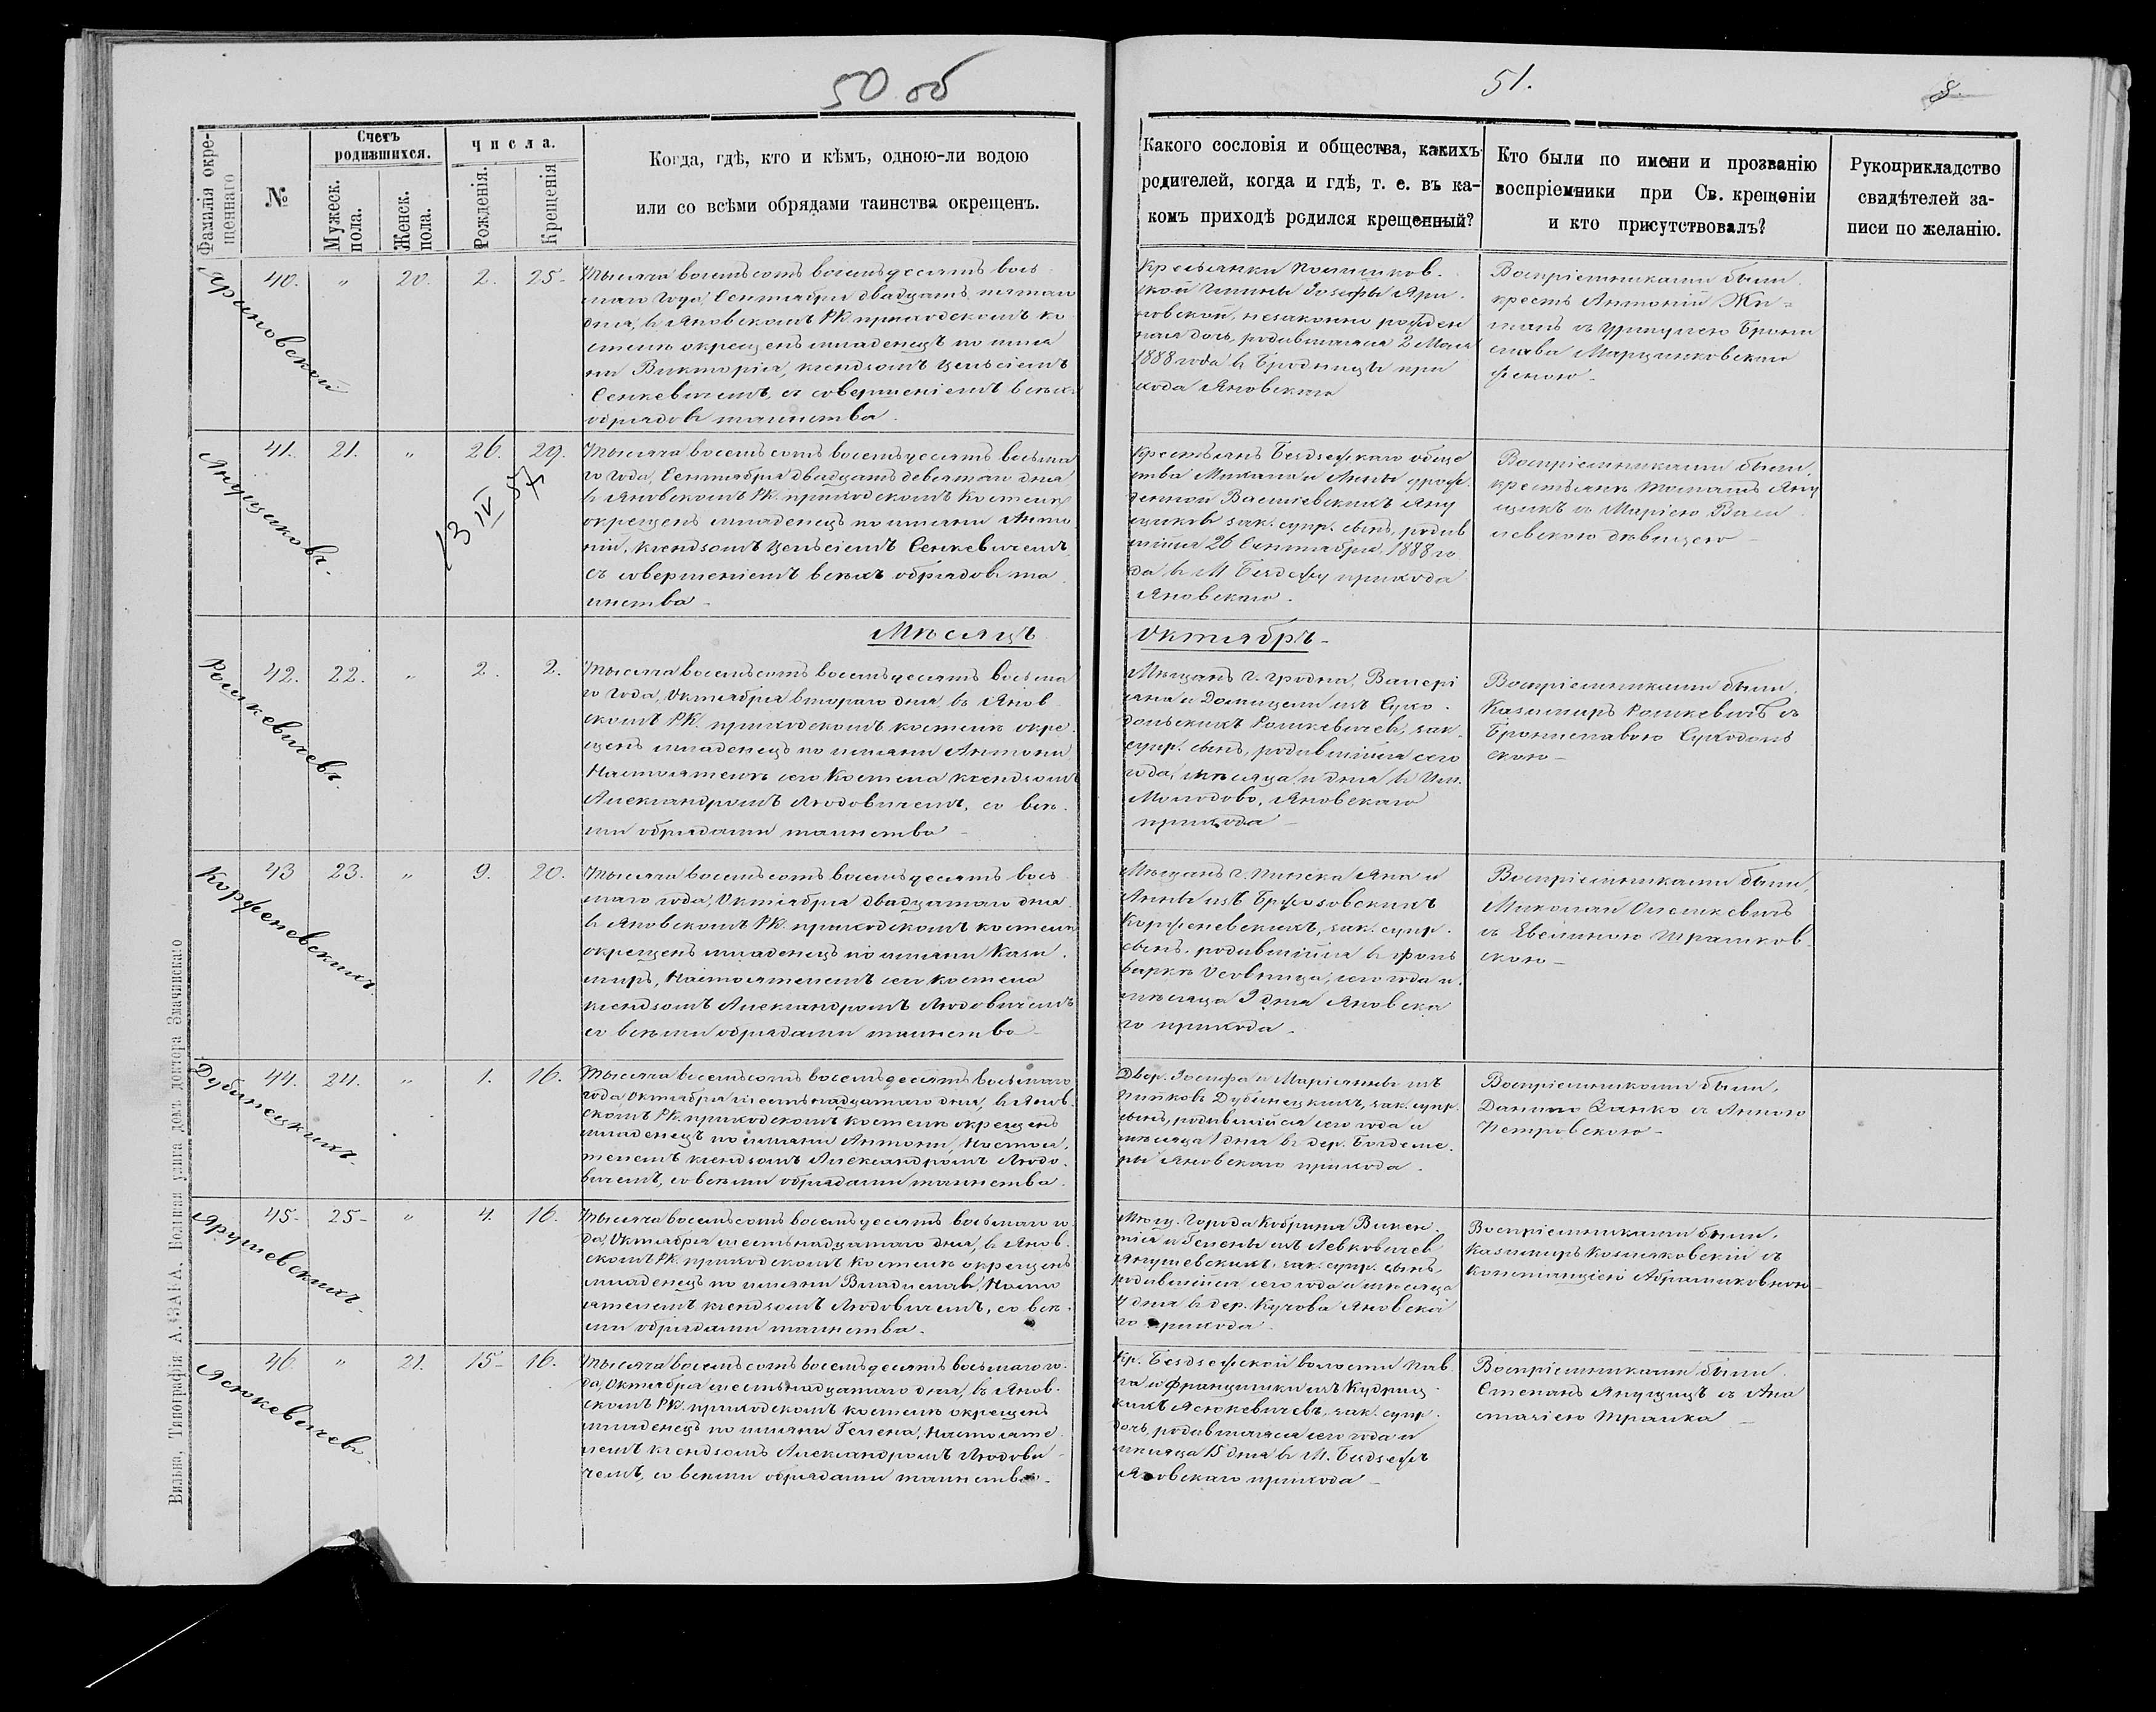 50 об
51.
8.
Фамилія окре-
щеннаго
№
Счетъ
родившихся.
Мужеск.
пола.
Женск.
пола.
Числа.
Рожденія.
Крещенія
Когда, гдѣ, кто и кѣмъ, одною-ли водою
или со всѣми обрядами таинства окрещенъ.
Какого сословія и общества, какихъ
родителей, когда и гдѣ, т. е. въ ка-
комъ приходѣ родился крещенный?
Кто были по имени и прозванію
воспріемники при Св. крещеніи
и кто присутствовалъ?
Рукоприкладство
свидѣтелей за-
писи по желанію.
Яриновской
40. " 20. 2. 25-
Тысяча восемьсотъ восемьдесятъ вось
маго года, Сентября двадцать пятаго
дня, въ Яновскомъ РК. приходскомъ ко
стелѣ окрещенъ младенецъ по име
ни Викторія, ксендзомъ Цельсіемъ
Сенкевичемъ, съ совершеніемъ всѣхъ
обрядовъ таинства.
Крестьянки
ской Гмины Іозефы Яри
новской, незаконно рожден
ная дочь, родившаяся 2 Мая
1888 года въ Бродницѣ при
хода Яновскаго
Воспріемниками были
крест. Антоній Жи-
манъ съ Уршулею Брони
слава Марцинковскаго
женою-
Янущиковъ.
41. 21. " 26. 29.
Тысяча восемьсотъ восемьдесятъ восьма
го года, Сентября двадцать девятаго дня
въ Яновскомъ РК. приходскомъ костелѣ
окрещенъ младенецъ по имени Анто
ній, ксендзомъ Цельсіемъ Сенкевичемъ,
съ совершеніемъ всѣхъ обрядовъ та
инства-
13 IV 57
Крестьянъ Бездзежскаго обще
ства Михала и Анны урож
денной Василевскихъ Яну
щиковъ зак. супр. сынъ, родив
шійся 26 Сентября 1888 го
да въ М. Бездежу прихода
Яновскаго.
Воспріемниками были
крестьянъ Томашъ Яну
щикъ съ Маріею Васи
левскою дѣвицею-
Мѣсяцъ
Октябрь-
Ромкевичевъ.
42. 22. " 2. 2.
Тысяча восемьсотъ восемьдесятъ восьма
го года, Октября втораго дня, въ Янов
скомъ РК. приходскомъ костелѣ окре
щенъ младенецъ по имени Антони
Настоятелемъ сего Костела ксендзомъ
Александромъ Людовичемъ, со всѣ
ми обрядами таинства-
Мѣщанъ г. Гродна, Валері
яна и Домицели изъ Сухо
дольскихъ Ромкевичевъ, зак.
супр. сынъ, родившійся сего
года, мѣсяца и дня въ Им.
Молодово, Яновскаго
прихода-
Воспріемниками были
Казимиръ Ромкевичъ съ
Брониславою Суходоль
скою-
Корженевскихъ
43 23. " 9. 20.
Тысяча восемьсотъ восемьдесятъ вось
маго года, Октября двадцатаго дня
въ Яновскомъ РК. приходскомъ костелѣ
окрещенъ младенецъ по имени Кази
миръ, Настоятелемъ сего Костела
ксендзомъ Александромъ Людовичемъ
со всѣми обрядами таинства-
Мѣщанъ г. Пинска Яна и
Анны изъ Бржозовскихъ
Корженевскихъ, зак. супр.
сынъ, родившійся въ фоль
варкѣ Осовница, сего года и
мѣсяца 9 дня Яновска
го прихода-
Воспріемниками были,
Миколай Олешкевичъ
съ Евелиною Драшков
скою-
Дубинецкихъ-
44. 24. " 1. 16.
Тысяча восемьсотъ восемьдесятъ восьмаго
года Октября шестьнадцатаго дня, въ Янов
скомъ РК. приходскомъ костелѣ окрещенъ
младенецъ по имени Антони, Настоя
телемъ ксендзомъ Александромъ Людо
вичемъ, со всѣми обрядами таинства.
Двор. Іосифа и Маріянны изъ
Дубинецкихъ, зак. супр.
сынъ, родившійся сего года и
мѣсяца 1 дня въ дер.
ры Яновскаго прихода.
Воспріемниками были,
Данило Занко съ Анною
Петровскою-
Ярушевскихъ-
45- 25- " 4. 16.
Тысяча восемьсотъ восемьдесятъ восьмаго го
да, Октября шестьнадцатаго дня, въ Янов
скомъ РК. приходскомъ Костелѣ окрещенъ
младенецъ по имени Владиславъ, Насто
ятелемъ ксендзомъ Людовичемъ, со всѣ
ми обрядами таинства.
Мѣщ. Города Кобрина Викен
тія и Гелены изъ Левковичев
Ярушевскихъ, зак. супр. сынъ,
родившійся сего года и мѣсяца
4 дня въ дер. Яновска
го прихода
Воспріемниками были,
Казимиръ Козляковскій съ
Констанціею Абрамиковною
Ясюкевичевъ.
46. " 21. 15- 16.
Тысяча восемьсотъ восемьдесятъ восьмаго го
да, Октября шестьнадцатаго дня, въ Янов
скомъ РК. приходскомъ костелѣ окрещенъ
младенецъ по имени Гелена, Настояте
лемъ ксендзомъ Александромъ Людови
чемъ, со всѣми обрядами таинства.
Кр. Бездзежской волости Пав
ла и Францишки изъ Кудриц
кихъ Ясюкевичевъ, зак. супр.
дочь, родившаяся сего года и
мѣсяца 15 дня въ М. Бездзежъ
Яновскаго прихода-
Воспріемниками были
Степанъ Янущицъ съ Ана
стазіею Трашка-
Вильна, Типографія А. ЗАКА, Большая улица домъ доктора Змачинскаго